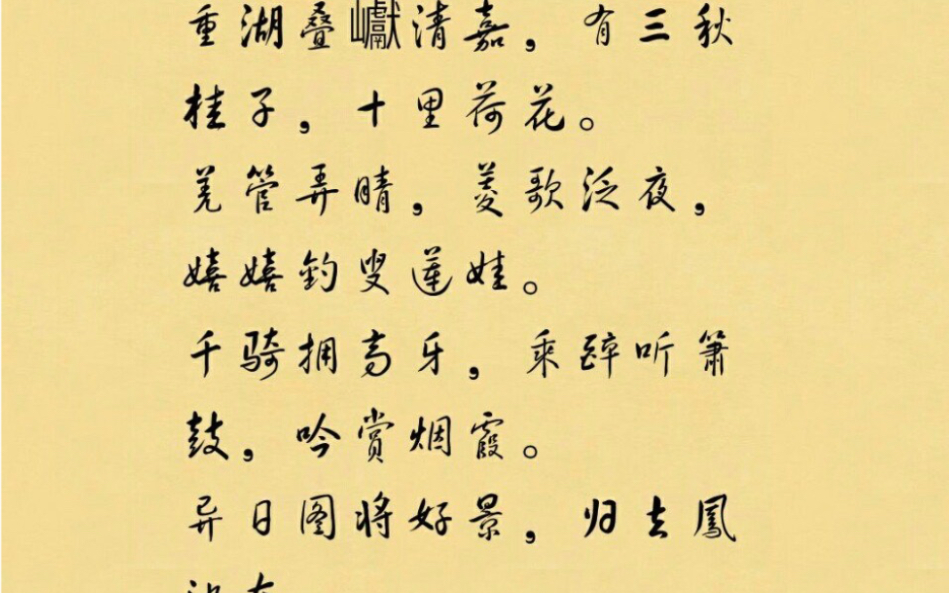 重湖叠巘清嘉，有三秋
桂子，十里荷花。
羌管弄晴，菱歌泛夜，
嬉嬉钓叟莲娃。
千骑拥高牙，乘醉听箫
鼓，吟赏烟霞。
异日图将好景，归去凤